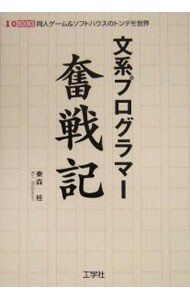 I/O BOOKS 同人ゲーム&ソフトハウスのトンデモ世界
文系プログラマー
奮戦記
秦森 桂
工学社